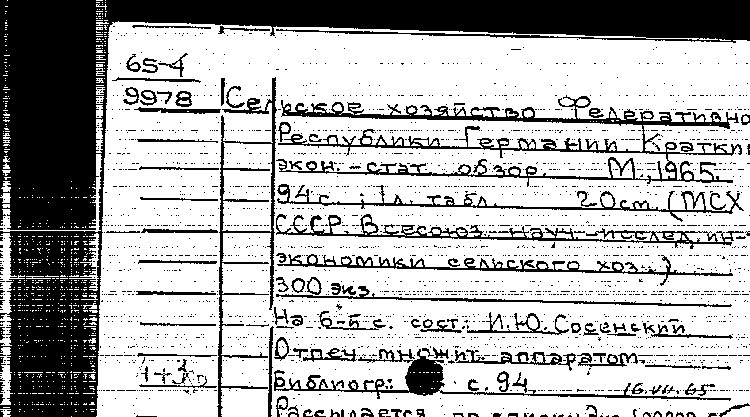 65-4
9978
Сельское хозяйство Федеративно
Республики Германии. Кратки
экон.-стат. обзор. М., 1965.
94 с.; 1 л. табл. 20 см. (МСХ
СССР. Всесоюз. науч.-исслед. ин-т
экономики сельского хоз.)
300 экз.
На 6-й с. сост.: И.Ю. Сосенский
Отпеч. множит. аппаратом.
Библиогр: с. 94.
16.VII.65
Рассылается по списку